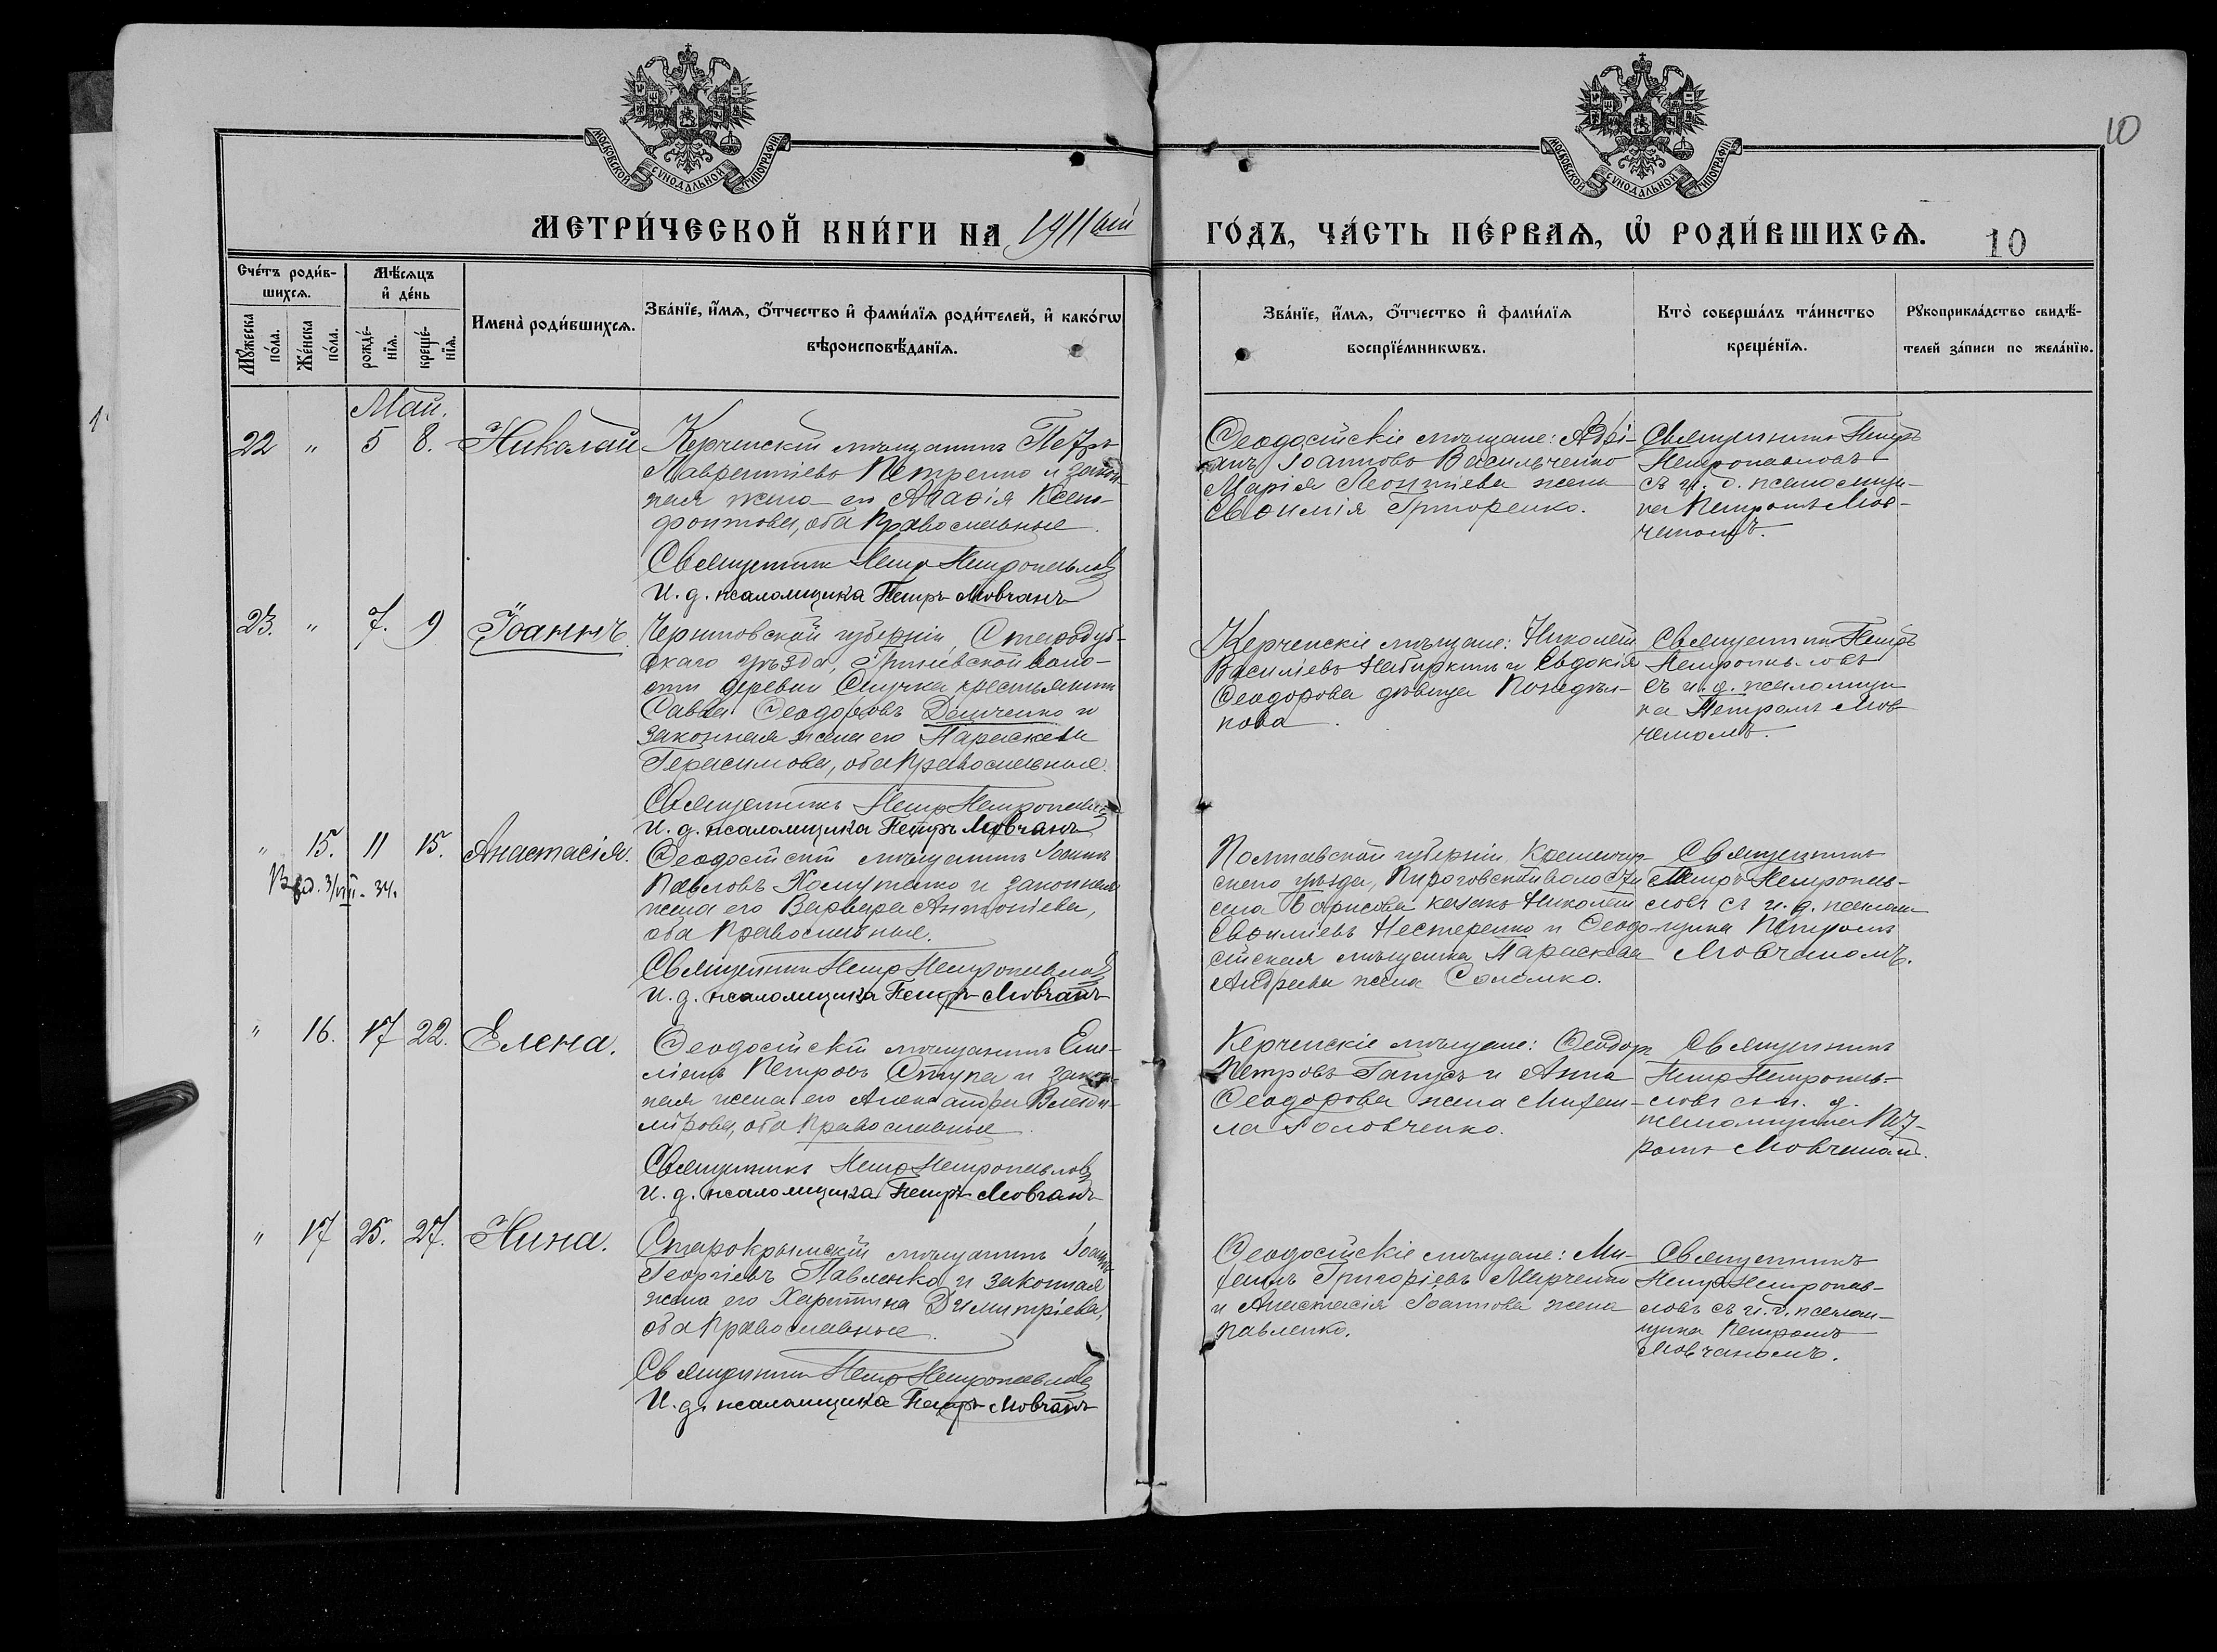 10
МОСКОВСКОЙ СѴНОДАЛЬНОЙ ТИПОГРАФІИ
МОСКОВСКОЙ СѴНОДАЛЬНОЙ ТИПОГРАФІИ
МЕТРИ́ЧЕСКОЙ КНИ́ГИ НА 1911ый ГО́ДЪ, ЧА́СТЬ ПЕ́РВАѦ, Ѡ҆ РОДИ́ВШИХСѦ. 10
Сче́тъ роди́в-
шихсѧ.
Мꙋ́жеска
по́ла.
Же́нска
по́ла.
Мѣ́сѧцъ
и҆ де́нь
рожде́-
нїѧ.
креще́-
нїѧ.
Имена̀ роди́вшихсѧ.
Зва́нїе, и҆́мѧ, ѻ҆́тчество и҆ фами́лїѧ роди́телей, и҆ како́гѡ
вѣроисповѣ́данїѧ.
Зва́нїе, и҆́мѧ, ѻ҆́тчество и҆ фами́лїѧ
воспрїе́мникѡвъ.
Кто̀ соверша́лъ та́инство
креще́нїѧ.
Рꙋкоприкла́дство свидѣ́-
телей за́писи по жела́нїю.
Май.
22 " 5 8. Николай
Керченскій мѣщанинъ Петръ
Лаврентіевъ Петренко и закон-
ная жена его Агаѳія Ксено-
фонтова, оба Православные.
Священникъ Петръ Петропавловъ
И. д. псаломщика Петръ Мовчанъ
Ѳеодосійскіе мѣщане:
Іоанновъ Васильченко
Марія Леонтіева жена
Евѳимія Григоренко.
Священникъ Петръ
Петропавловъ
съ и. д. псаломщи-
ка Петромъ Мов-
чаномъ.
23. " 7. 9 Іоаннъ.
Черниговской губерніи, Стародуб-
скаго уѣзда, Гриневской воло-
сти деревни Случка крестьянинъ
Савва Ѳеодоровъ Демченко и
законная жена его Параскева
Герасимова, оба Православные.
Священникъ Петръ Петропавловъ
И. д. псаломщика Петръ Мовчанъ
Керченскіе мѣщане: Николай
Василіевъ и Евдокія
Ѳеодорова дѣвица
нова.
Священникъ Петръ
Петропавловъ
съ и. д. псаломщи-
ка Петромъ Мов-
чаномъ.
" 15. 11 15. Анастасія.
3/VIII - 34.
Ѳеодосійскій мѣщанинъ Іоаннъ
Павловъ Хомутенко и законная
жена его Варвара Антоніева,
оба Православные.
Священникъ Петръ Петропавловъ
И. д. псаломщика Петръ Мовчанъ
Полтавской губерніи Кременчуг-
скаго уѣзда, Пироговской волости
села Борисова казакъ Николай
Евѳиміевъ Нестеренко и Ѳеодо-
сійская мѣщанка Параскева
Андреева жена Соломко.
Священникъ
Петръ Петропав-
ловъ съ и. д. псалом-
щика Петромъ
Мовчаномъ.
" 16. 17 22. Елена.
Ѳеодосійскій мѣщанинъ Еме-
ліанъ Петровъ Ступа и закон-
ная жена его Александра Влади-
мірова, оба Православные.
Священникъ Петръ Петропавловъ
И. д. псаломщика Петръ Мовчанъ
Керченскіе мѣщане: Ѳеодоръ
Петровъ Гапусъ и Анна
Ѳеодорова жена Михаи-
ла Головченко.
Священникъ
Петръ Петропав-
ловъ съ и. д.
псаломщика Пет-
ромъ Мовчаномъ.
" 17 25. 27. Нина.
Старокрымскій мѣщанинъ Іоаннъ
Георгіевъ Павленко и законная
жена его Харитина Димитріева,
оба Православные.
Священникъ Петръ Петропавловъ
И. д. псаломщика Петръ Мовчанъ
Ѳеодосійскіе мѣщане: Ми-
хаилъ Григоріевъ Марченко
и Анастасія Іоаннова жена
Павленко.
Священникъ
Петръ Петропав-
ловъ съ и. д. псалом-
щика Петромъ
Мовчаномъ.